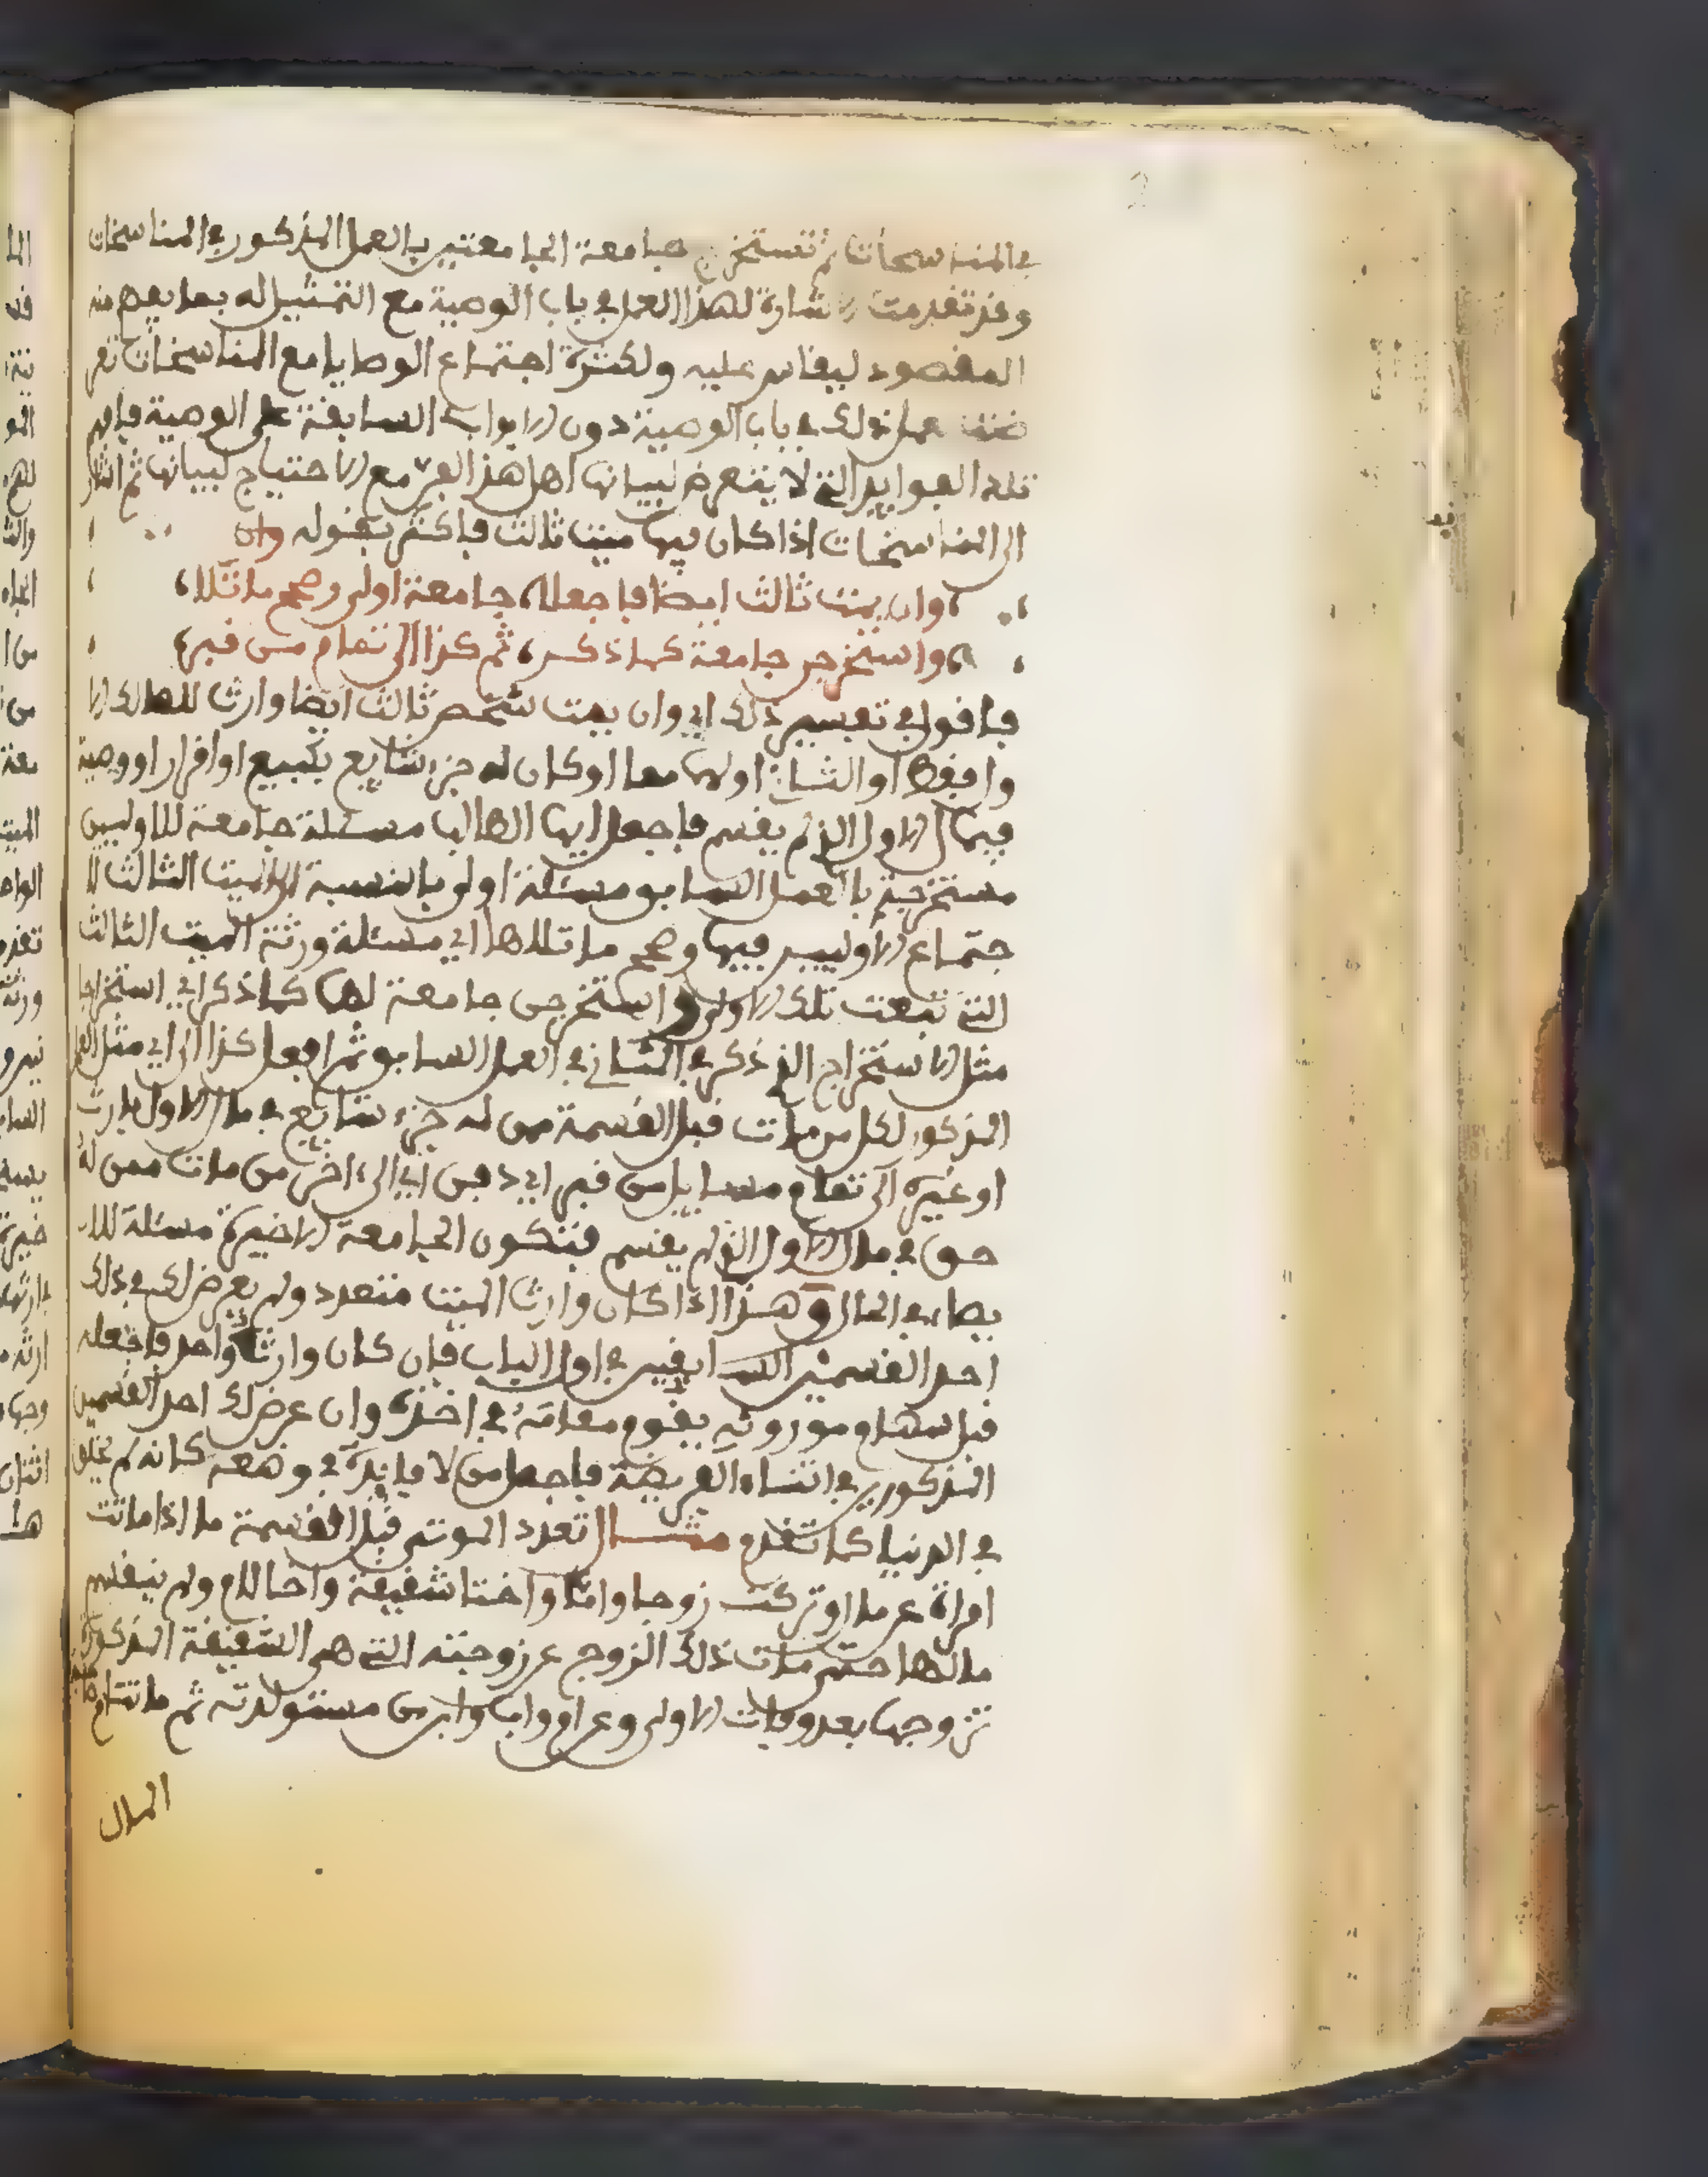 في المناسخات ثم تستخرج جامعة الجامعتين بالعمل المذكور في المناسخات
وقد تقدمت الاشارة لهذا العمل في باب الوصية مع التمثيل له بما يفهم منه
المقصود ليقاس عليه ولكثرة اجتماع الوصايا مع المناسخات تعر
ضت عمل ذلك في باب الوصية دون الابواب السابقة على الوصية فافهم
تلك الفوايد التي لا يتعرض لبيانها اهل هذا الفن مع الاحتياج لبيانها ثم اشار
الى المناسخات اذا كان فيها ميت ثالث فاكثر بقوله وان
وان يمت ثالث ايضا فاجعلا، جامعة اولى وصحح ما تلا،
واستخرجن جامعة كما ذكر، ثم كذا الى تمام من قبر،
فاقول في تفسير ذلك اي وان يمت شخص ثالث ايضا وارث للهالك الا
ول فقط او الثاني او لهما معا او كان له جزء شايع بكبيع او اقرار او وصية
فيمال الاول الذي لم يقسم فاجعل ايها الطالب مسئلة جامعة للاوليين
مستخرجة بالعمل السابق مسئلة اولى بالنسبة للميت الثالث لا
جتماع الاوليين فيها وصحح ما تلاها اي مسئلة ورثة الميت الثالث
التي تبعت تلك الاولى واستخرجن جامعة لهما كما ذكر اي استخراجا
مثل الاستخراج الذي ذكر في الثاني في العمل السابق ثم افعل كذا الى اي مثل العمل
المذكور لكل من مات قبل القسمة ممن له جزء شايع في مال الاول بارث
او غيره الى تمام مسايل من قبر اي دفن اي الى اخر من مات ممن له
حق في مال الاول الذي لم يقسم فتكون الجامعة الاخيرة مسئلة للا
يصاء في الحال وهذا اذا كان وارث الميت متعدد ولم يعرض لك في ذلك
احد القسمين السابقين في اول الباب فان كان وارثا واحد فاجعله
قبل سهام موروثه يقوم مقامه في اخذه وان عرض لك احد القسمين
المذكورين في انشاء الفريضة فاجعل من لا فايدة في وضعه كانه لم يخلق
في الدنيا كما تقدم مثال تعدد الموتى قبل القسمة ما اذا ماتت
امراة عن مال وتركت زوجا واما واختا شقيقة واخا للام ولم ينقسم
مالها حتى مات ذلك الزوج عن زوجته التي هي الشقيقة المذكورة
تزوجها بعد وفات الاولى وعن ام واب وابن من مستولدته ثم ماتت ام
المال